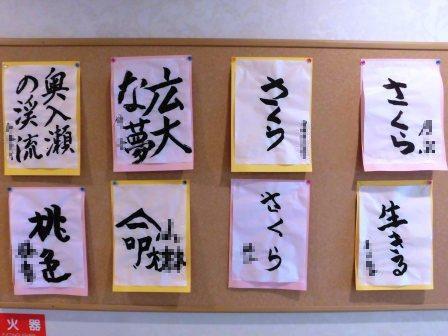 奥入瀬
の渓流
広大
な夢
さくら
さくら
桃色
命
さくら
生きる
火器